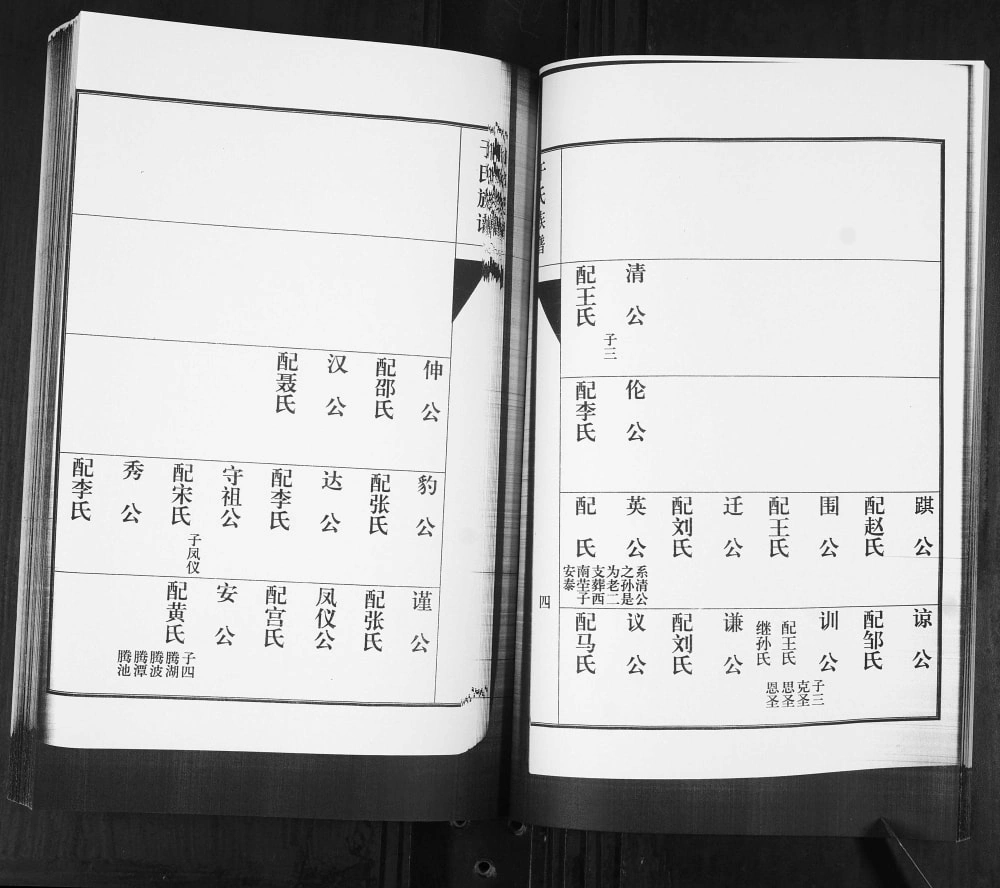 清公
子三
配王氏
伦公
配李氏
踑公
配赵氏
围公
配王氏
迁公
配刘氏
英公
系清公
之孙是
为老二
支葬西
南茔子
安泰
配 氏
谅公
配邹氏
训公
配王氏
继孙氏
子三
克圣
思圣
恩圣
谦公
配刘氏
议公
配马氏
于氏族谱
四
于氏族谱
伸公
配邵氏
汉公
配聂氏
豹公
配张氏
达公
配李氏
守祖公
配宋氏
子凤仪
秀公
配李氏
谨公
配张氏
凤仪公
配宫氏
安公
配黄氏
子四
腾湖
腾波
腾潭
腾池